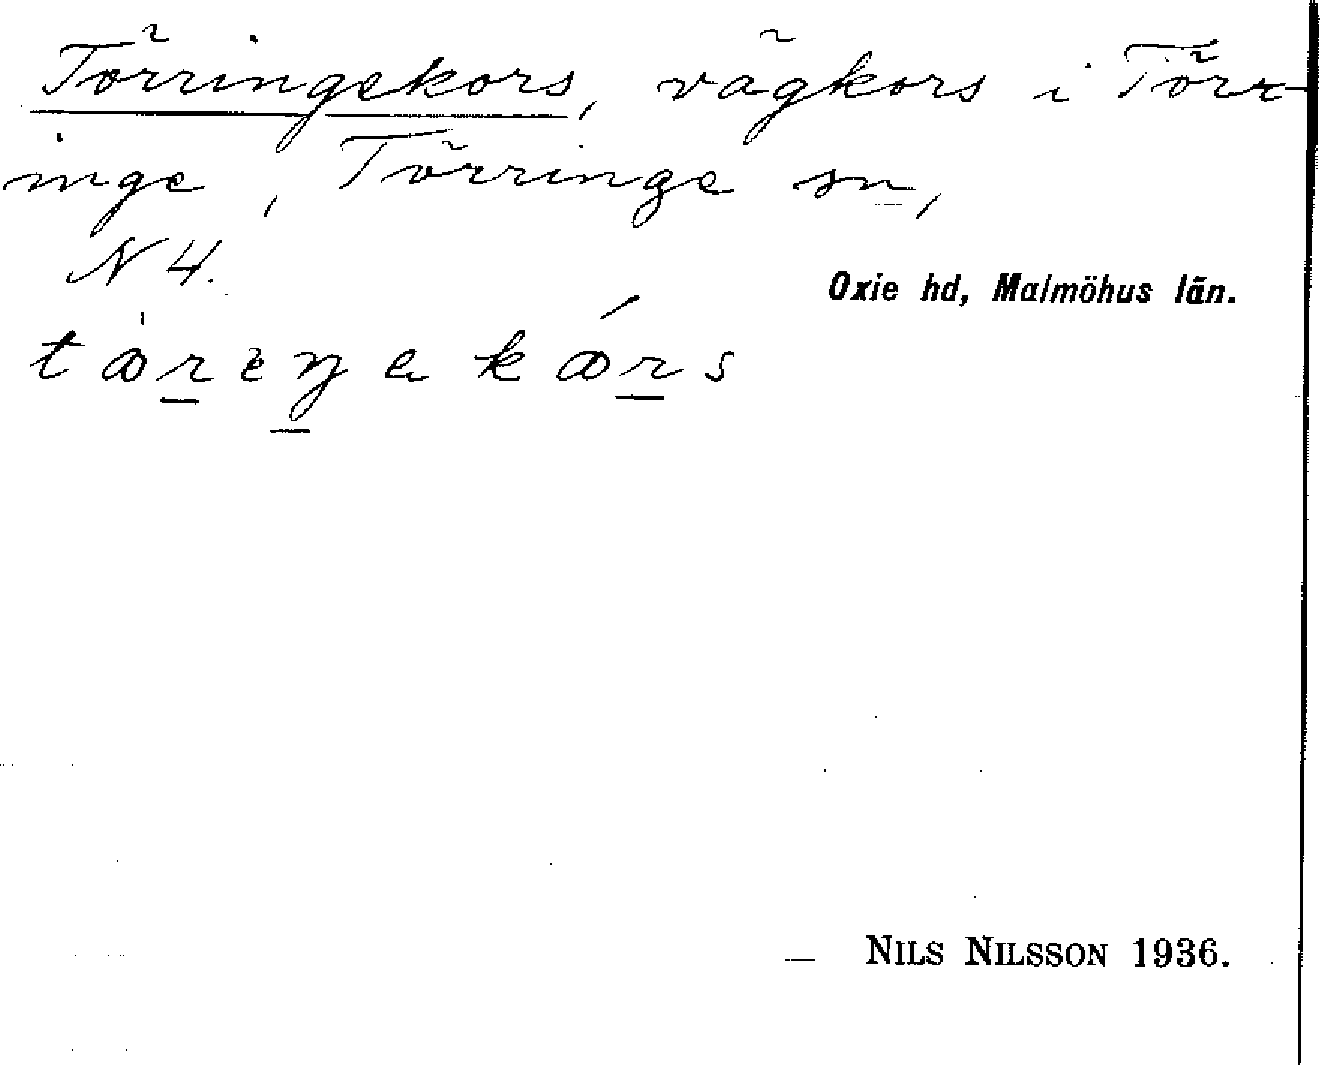 Törringekors, vägkors i Törr-
inge, Törringe sn,
N 4.
Oxie hd, Malmöhus län.
NILS NILSSON 1936.